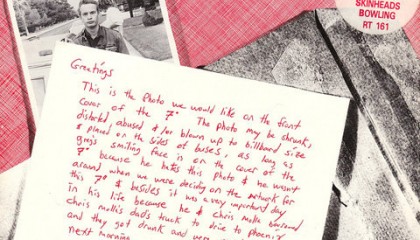 SKINHEADS
BOWLING
RT 161
Greetings
This is the photo we would like on the front
cover of the 7" The photo may be shrunk,
distorted abused &/or blown up to billboard size
& placed on the sides of buses, as long as
gregs smiling face is on the cover of the
7" because he hates this photo & he wasnt
around when we were deciding on the artwork for
this 7" & besides it was a very important day
in his life because he & chris molla borrowed
chris molla's dad's truck to drive to phoenix
and they got drunk and were
next morning